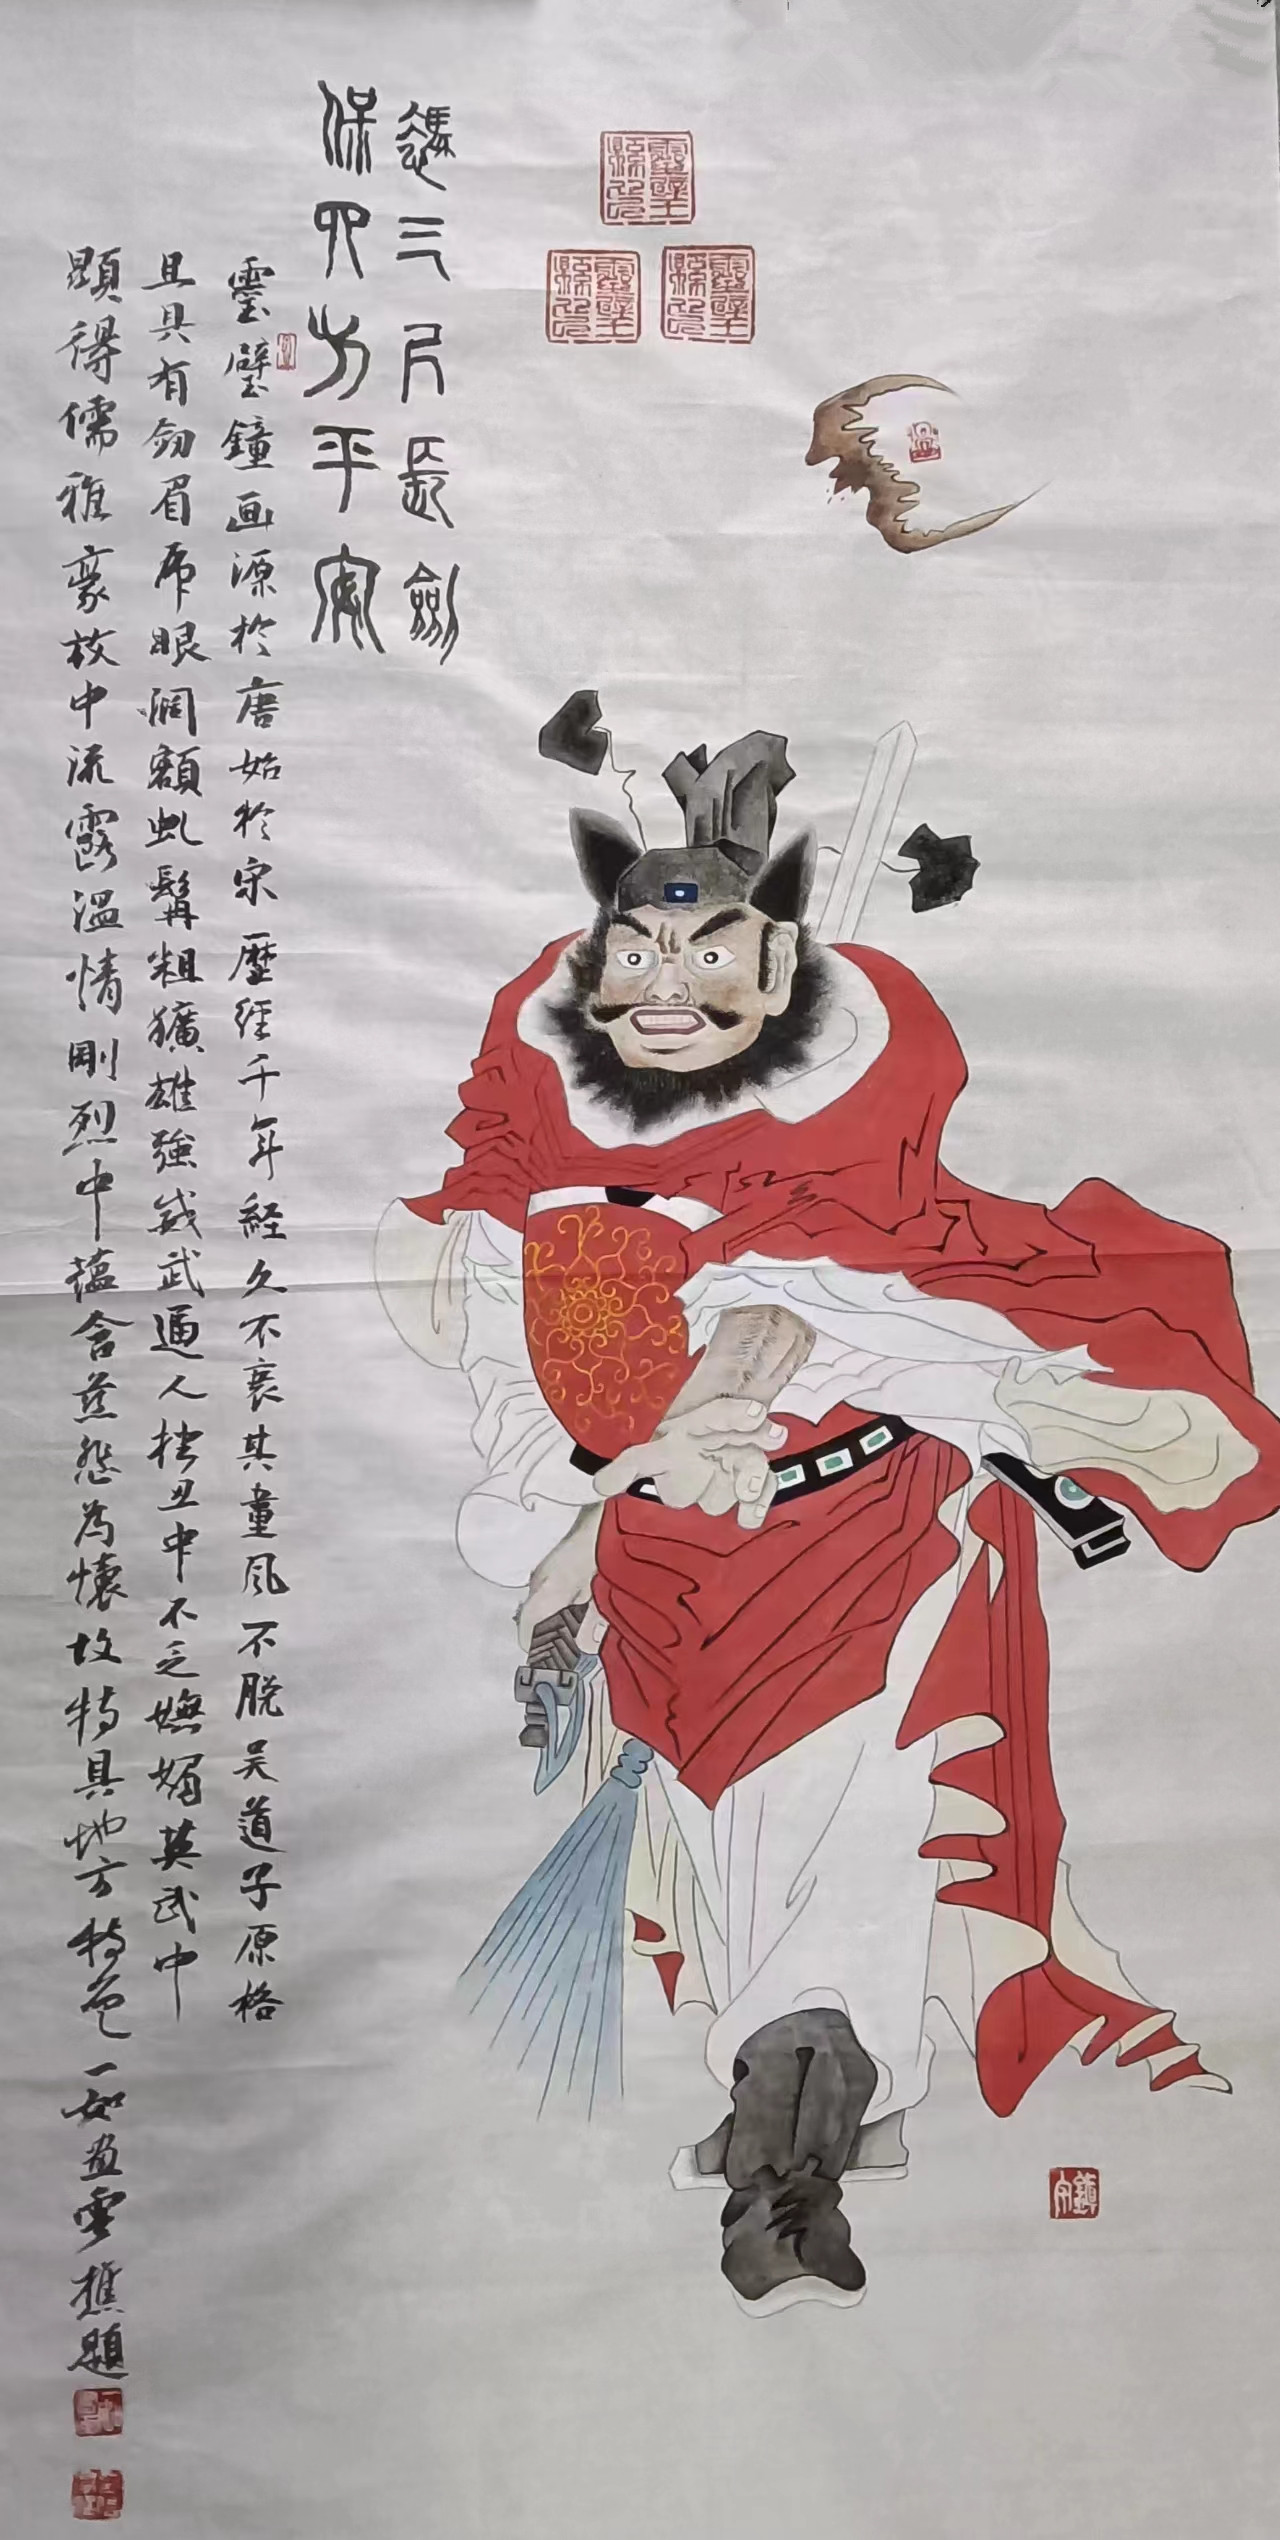 憑三尺長劍
保四方平安
靈璧縣印
靈璧縣印
靈璧縣印
靈璧鐘画源於唐始於宋歷經千年経久不衰其畫風不脱吴道子原格
且具有劒眉虎眼濶額虬髯粗獷雄強威武逼人拙丑中不乏嫵媚英武中
顕得儒雅豪放中流露温情剛烈中藴含慈悲為懷故特具地方特色 一如画雲樵題
鎮宅